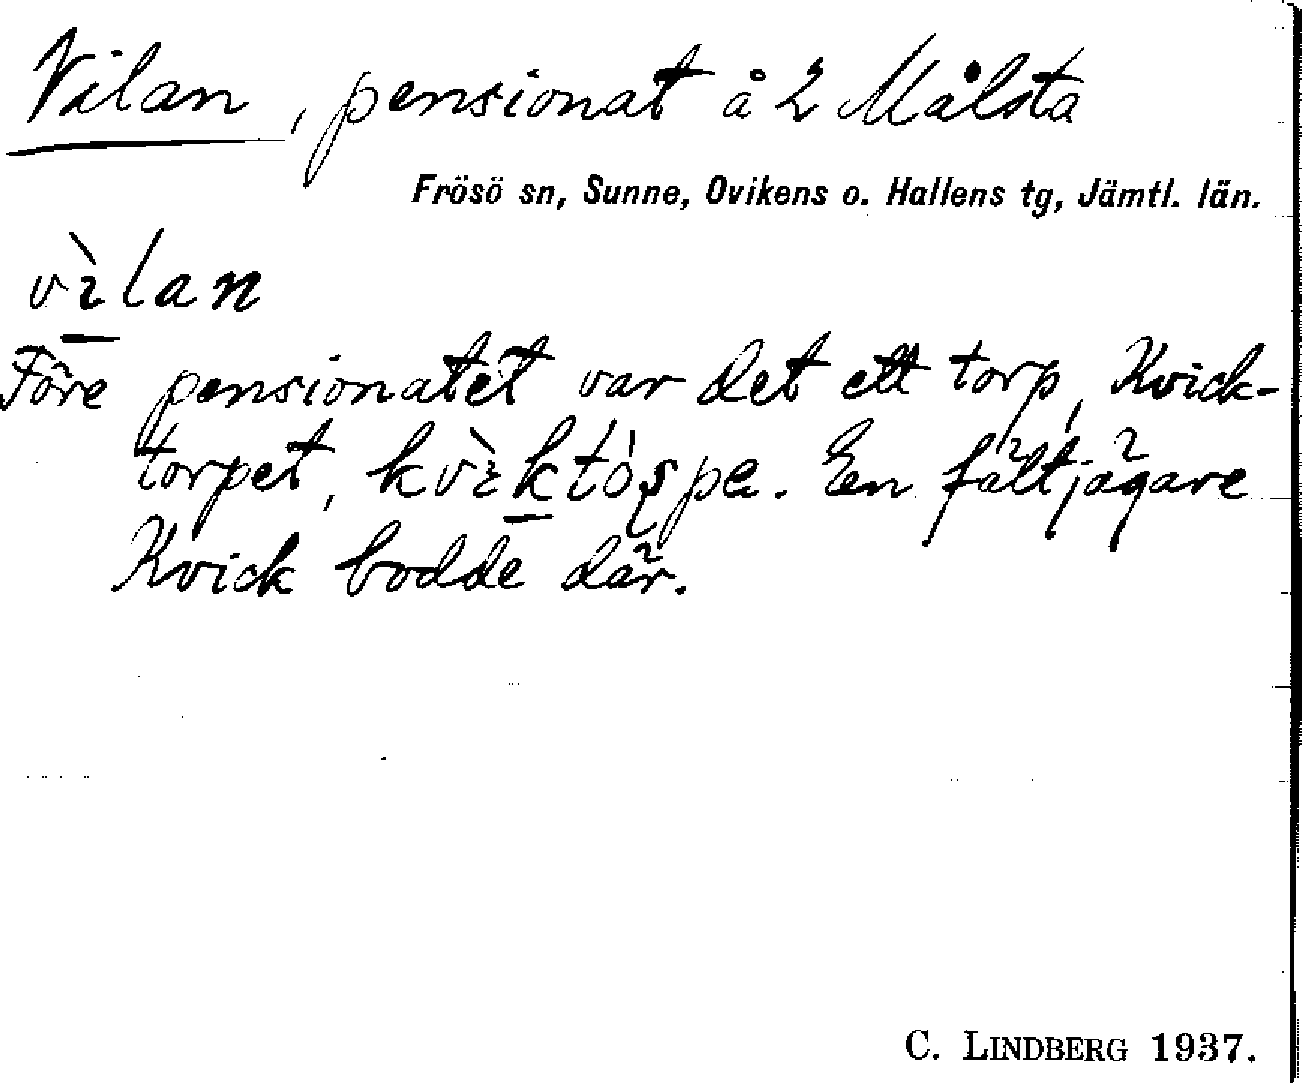 Vilan, pensionat å 2 Målsta
Frösö sn, Sunne, Ovikens o. Hallens tg, Jämtl. län.
vìlan
Före pensionatet var det ett torp, Kvick-
torpet, kvìktòspe. En fältjägare
Kvick bodde där.
C. LINDBERG 1937.